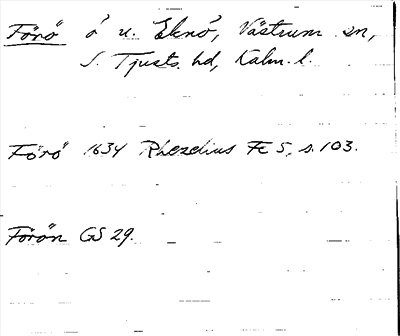 Förö ö u. Eknö, Västrum sn,
S. Tjusts hd, Kalm. l.
Förö 1634 Rhezelius Fc 5, s. 103.
Förön GS 29.